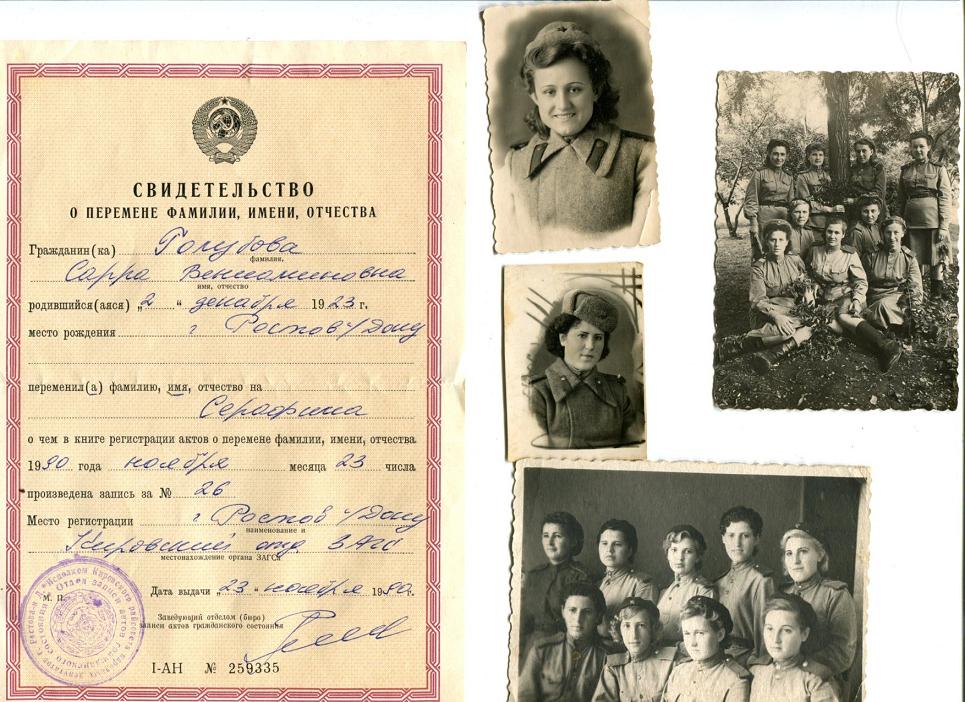 СВИДЕТЕЛЬСТВО
О ПЕРЕМЕНЕ ФАМИЛИИ, ИМЕНИ, ОТЧЕСТВА
Гражданин(ка) Голубова
фамилия,
Сарра Вениаминовна
имя, отчество
родившийся(аяся) „2“ декабря 1923 г.
место рождения г Ростов н/Дону
переменил(а) фамилию, имя, отчество на
Серафима
о чем в книге регистрации актов о перемене фамилии, имени, отчества
1990 года ноября месяца 23 числа
произведена запись за № 26
Место регистрации г Ростов н/Дону
наименование и
Кировский отд ЗАГС
местонахождение органа ЗАГСа
Дата выдачи „23“ ноября 1990г.
М. П.
Заведующий отделом (бюро)
записи актов гражданского состояния
I-АН № 259335